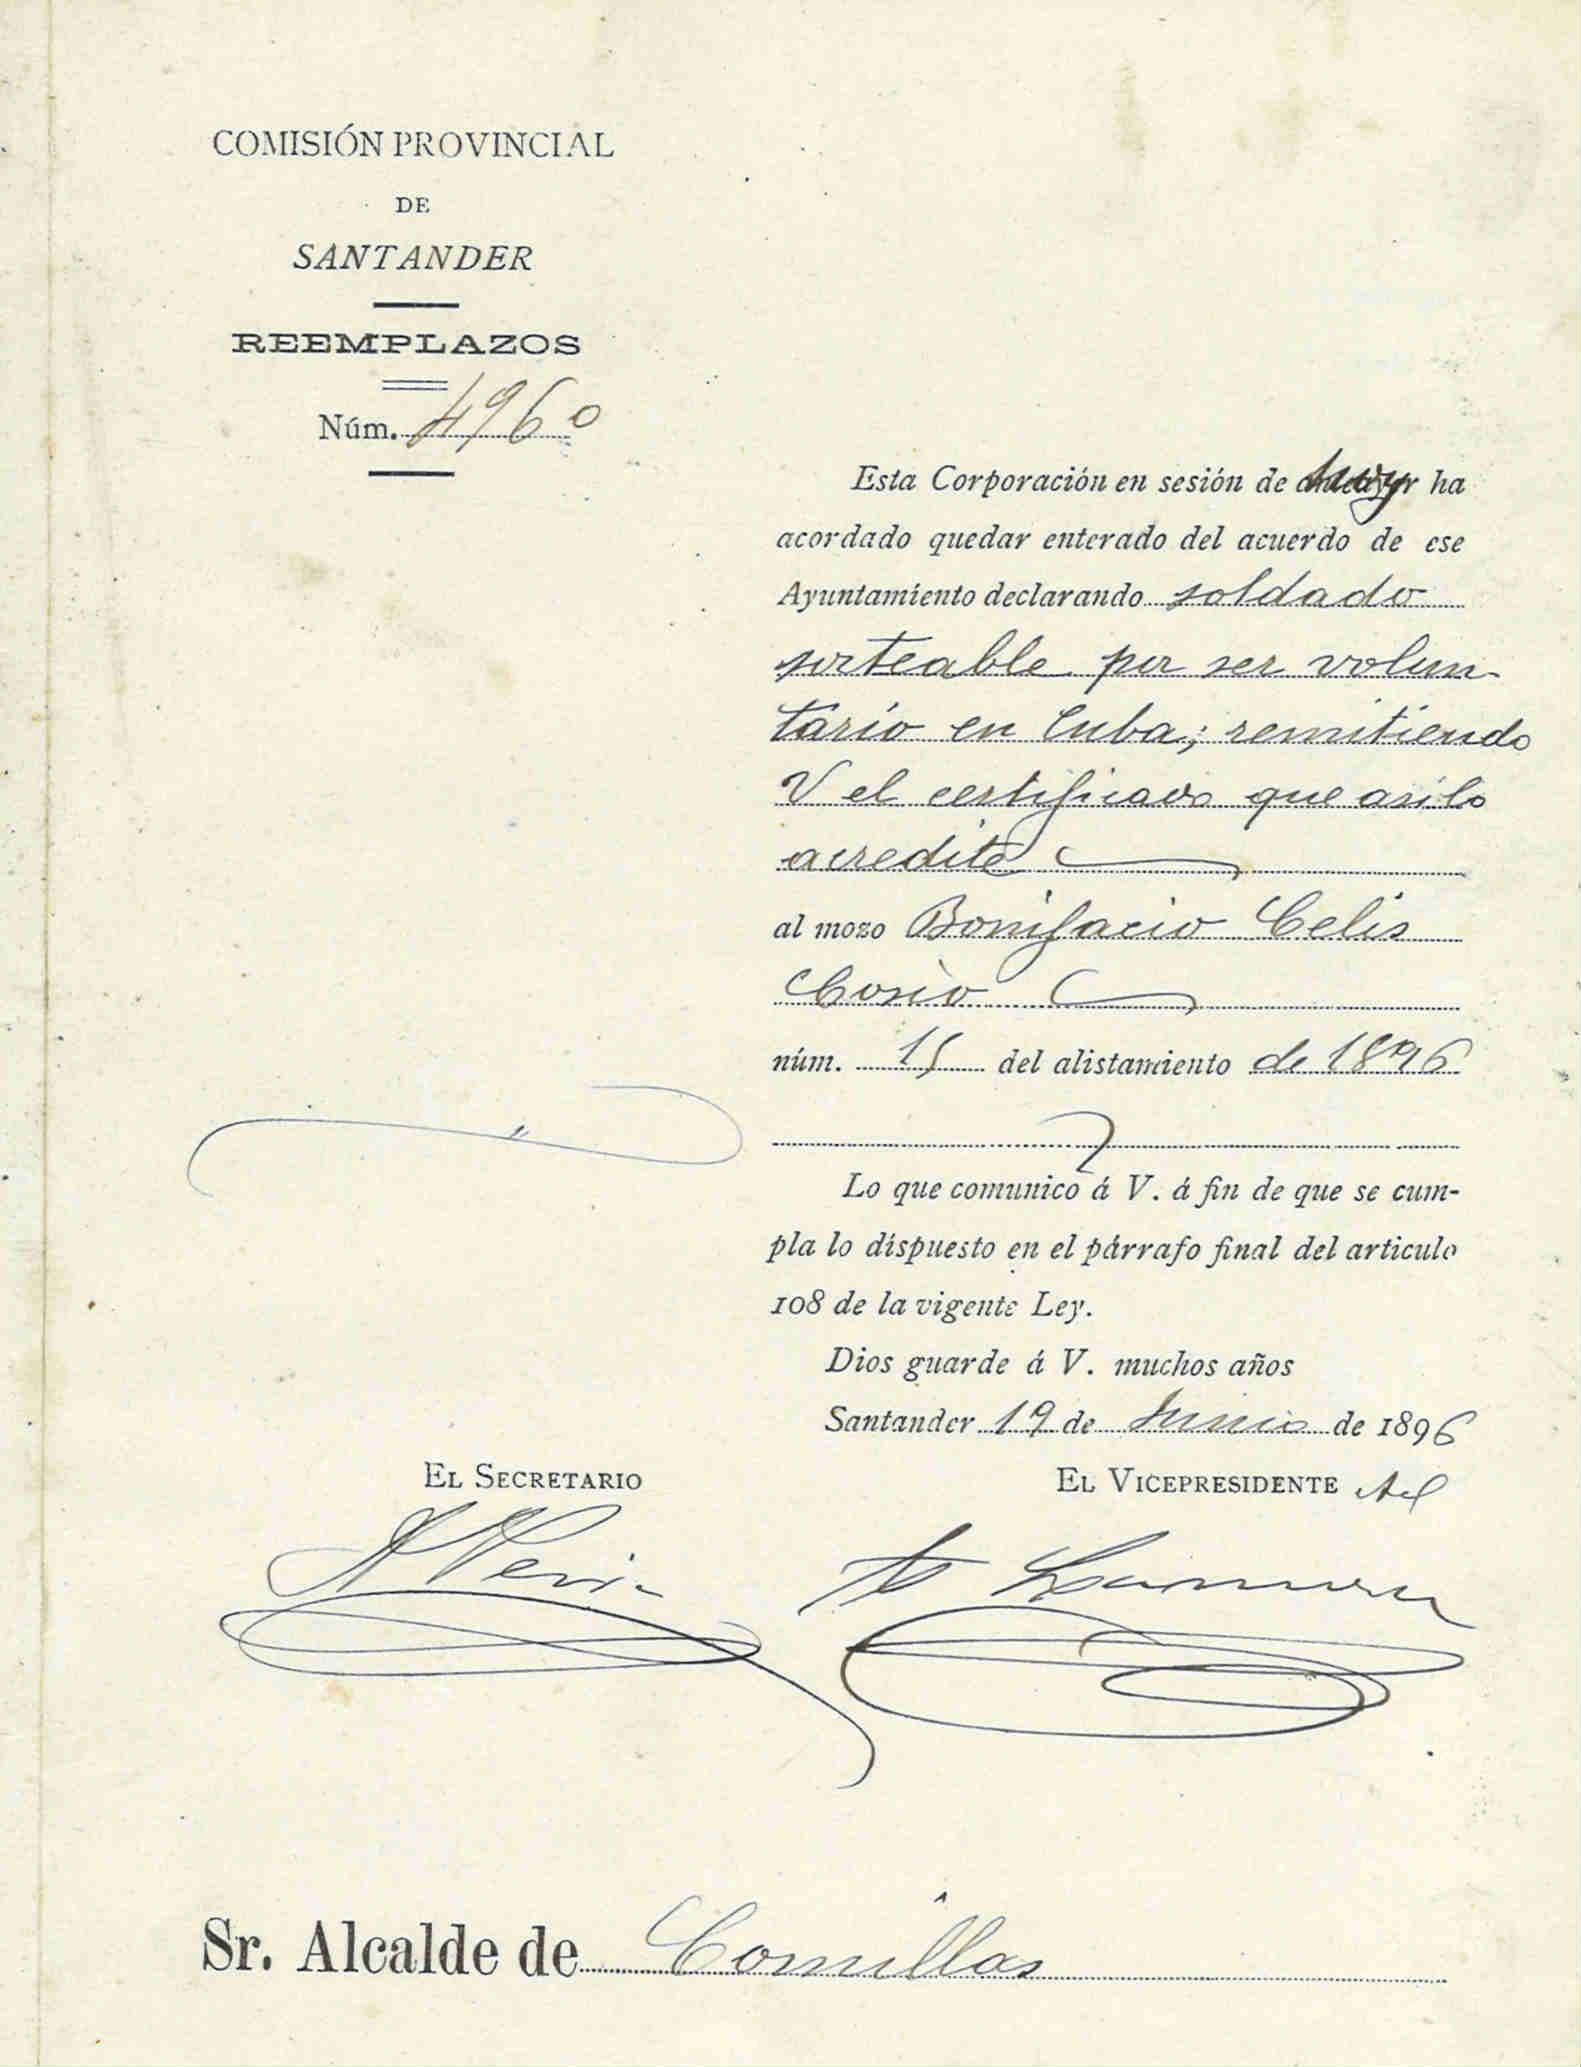 COMISIÓN PROVINCIAL
DE
SANTANDER
REEMPLAZOS
Núm. 4960
Esta Corporación en sesión de hoy ha
acordado quedar enterado del acuerdo de ese
Ayuntamiento declarando soldado
sorteable por ser volun-
tario en Cuba; remitiendo
V el certificado que asi lo
acredite
al mozo Bonifacio Celis
Cosio
núm. 15 del alistamiento de 1896
Lo que comunico á V. á fin de que se cum-
pla lo dispuesto en el párrafo final del articulo
108 de la vigente Ley.
Dios guarde á V. muchos años
Santander 19 de Junio de 1896
EL SECRETARIO
EL VICEPRESIDENTE
Sr. Alcalde de Comillas